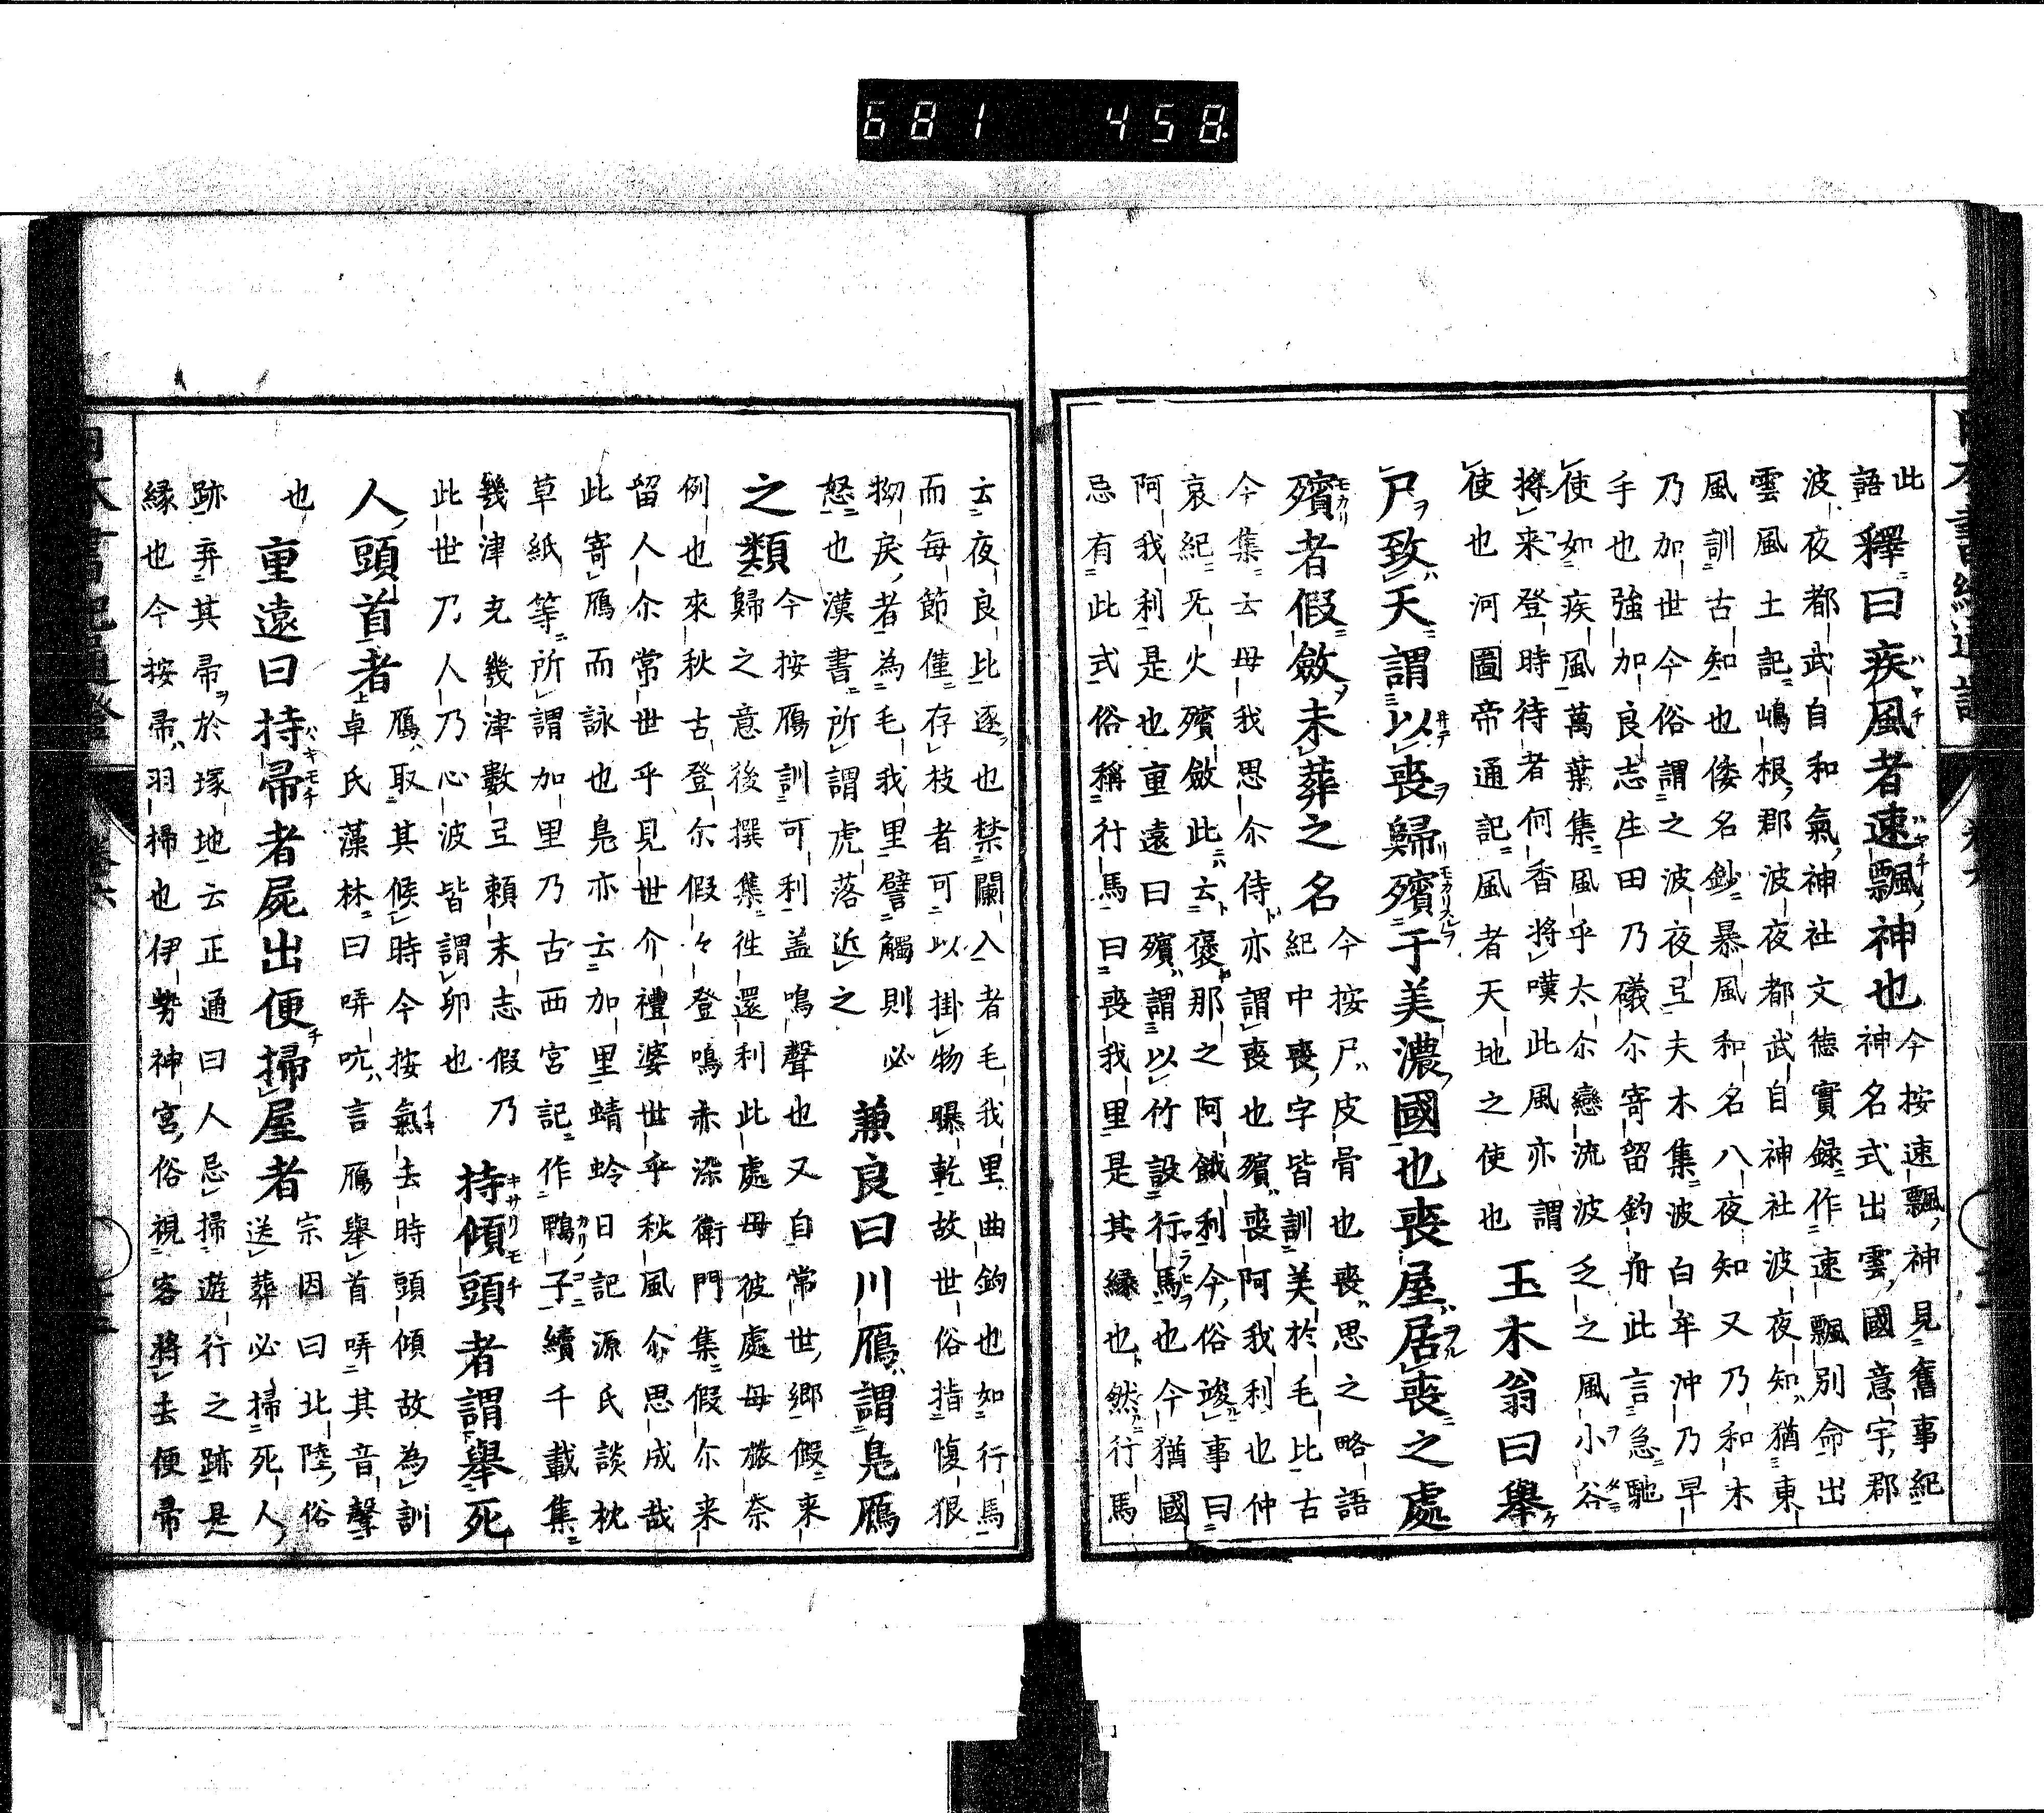 681 458
此
語 釋曰疾風者速飄神也今按速飄神見舊事紀
神名式出雲國意宇郡
波夜都武自和氣神社文德實録作速飄別命出
雲風土記嶋根郡波夜都武自神社波夜知猶東
風訓古知也倭名鈔暴風和名八夜知又乃和木
乃加世今俗謂之波夜弖夫木集波白牟沖乃早
手也強加良志生田乃礒尒寄留釣舟此言急馳
使如疾風萬葉集風乎太尒戀流波乏之風小谷
将来登時待者何香将嘆此風亦謂
使也河圖帝通記風者天地之使也 玉木翁曰舉
尸致天謂以喪歸殯于美濃國也喪屋居喪之處
殯者假斂未葬之名今按尸皮骨也喪思之略語
紀中喪字皆訓美於毛比古
今集云母我思尒侍亦謂喪也殯喪阿我利也仲
哀紀旡火殯斂此云褒那之阿餓利今俗竣事曰
阿我利是也重遠曰殯謂以竹設行馬也今猶國
忌有此式俗稱行馬曰喪我里是其縁也然行馬
云夜良比逐也禁闌入者毛我里曲鉤也如行馬
而毎節僅存枝者可以掛物曝乾故世俗指愎狠
拗戻者為毛我里譬觸則必
怒也漢書所謂虎落近之 兼良曰川鴈謂鳬鴈
之類今按鴈訓可利盖鳴聲也又自常世郷假来
歸之意後撰集徃還利此處毋彼處毋旅奈
例也來秋古登尒假々登鳴赤染衛門集假尒来
留人尒常世乎見世介禮婆世乎秋風尒思成哉
此寄鴈而詠也鳬亦云加里蜻蛉日記源氏談枕
草紙等所謂加里乃古西宮記作鴨子續千載集
幾津充幾津數弖頼末志假乃
此世乃人乃心波皆謂卯也 持傾頭者謂舉死
人頭首者鴈取其候時今按氣去時頭傾故為訓
卓氏藻林曰哢吭言鴈舉首哢其音聲
也 重遠曰持帚者屍出便掃屋者宗因曰北陸俗
送葬必掃死人
跡弃其帚於塚地云正通曰人忌掃遊行之跡是
縁也今按帚羽掃也伊勢神宮俗視客将去便帚